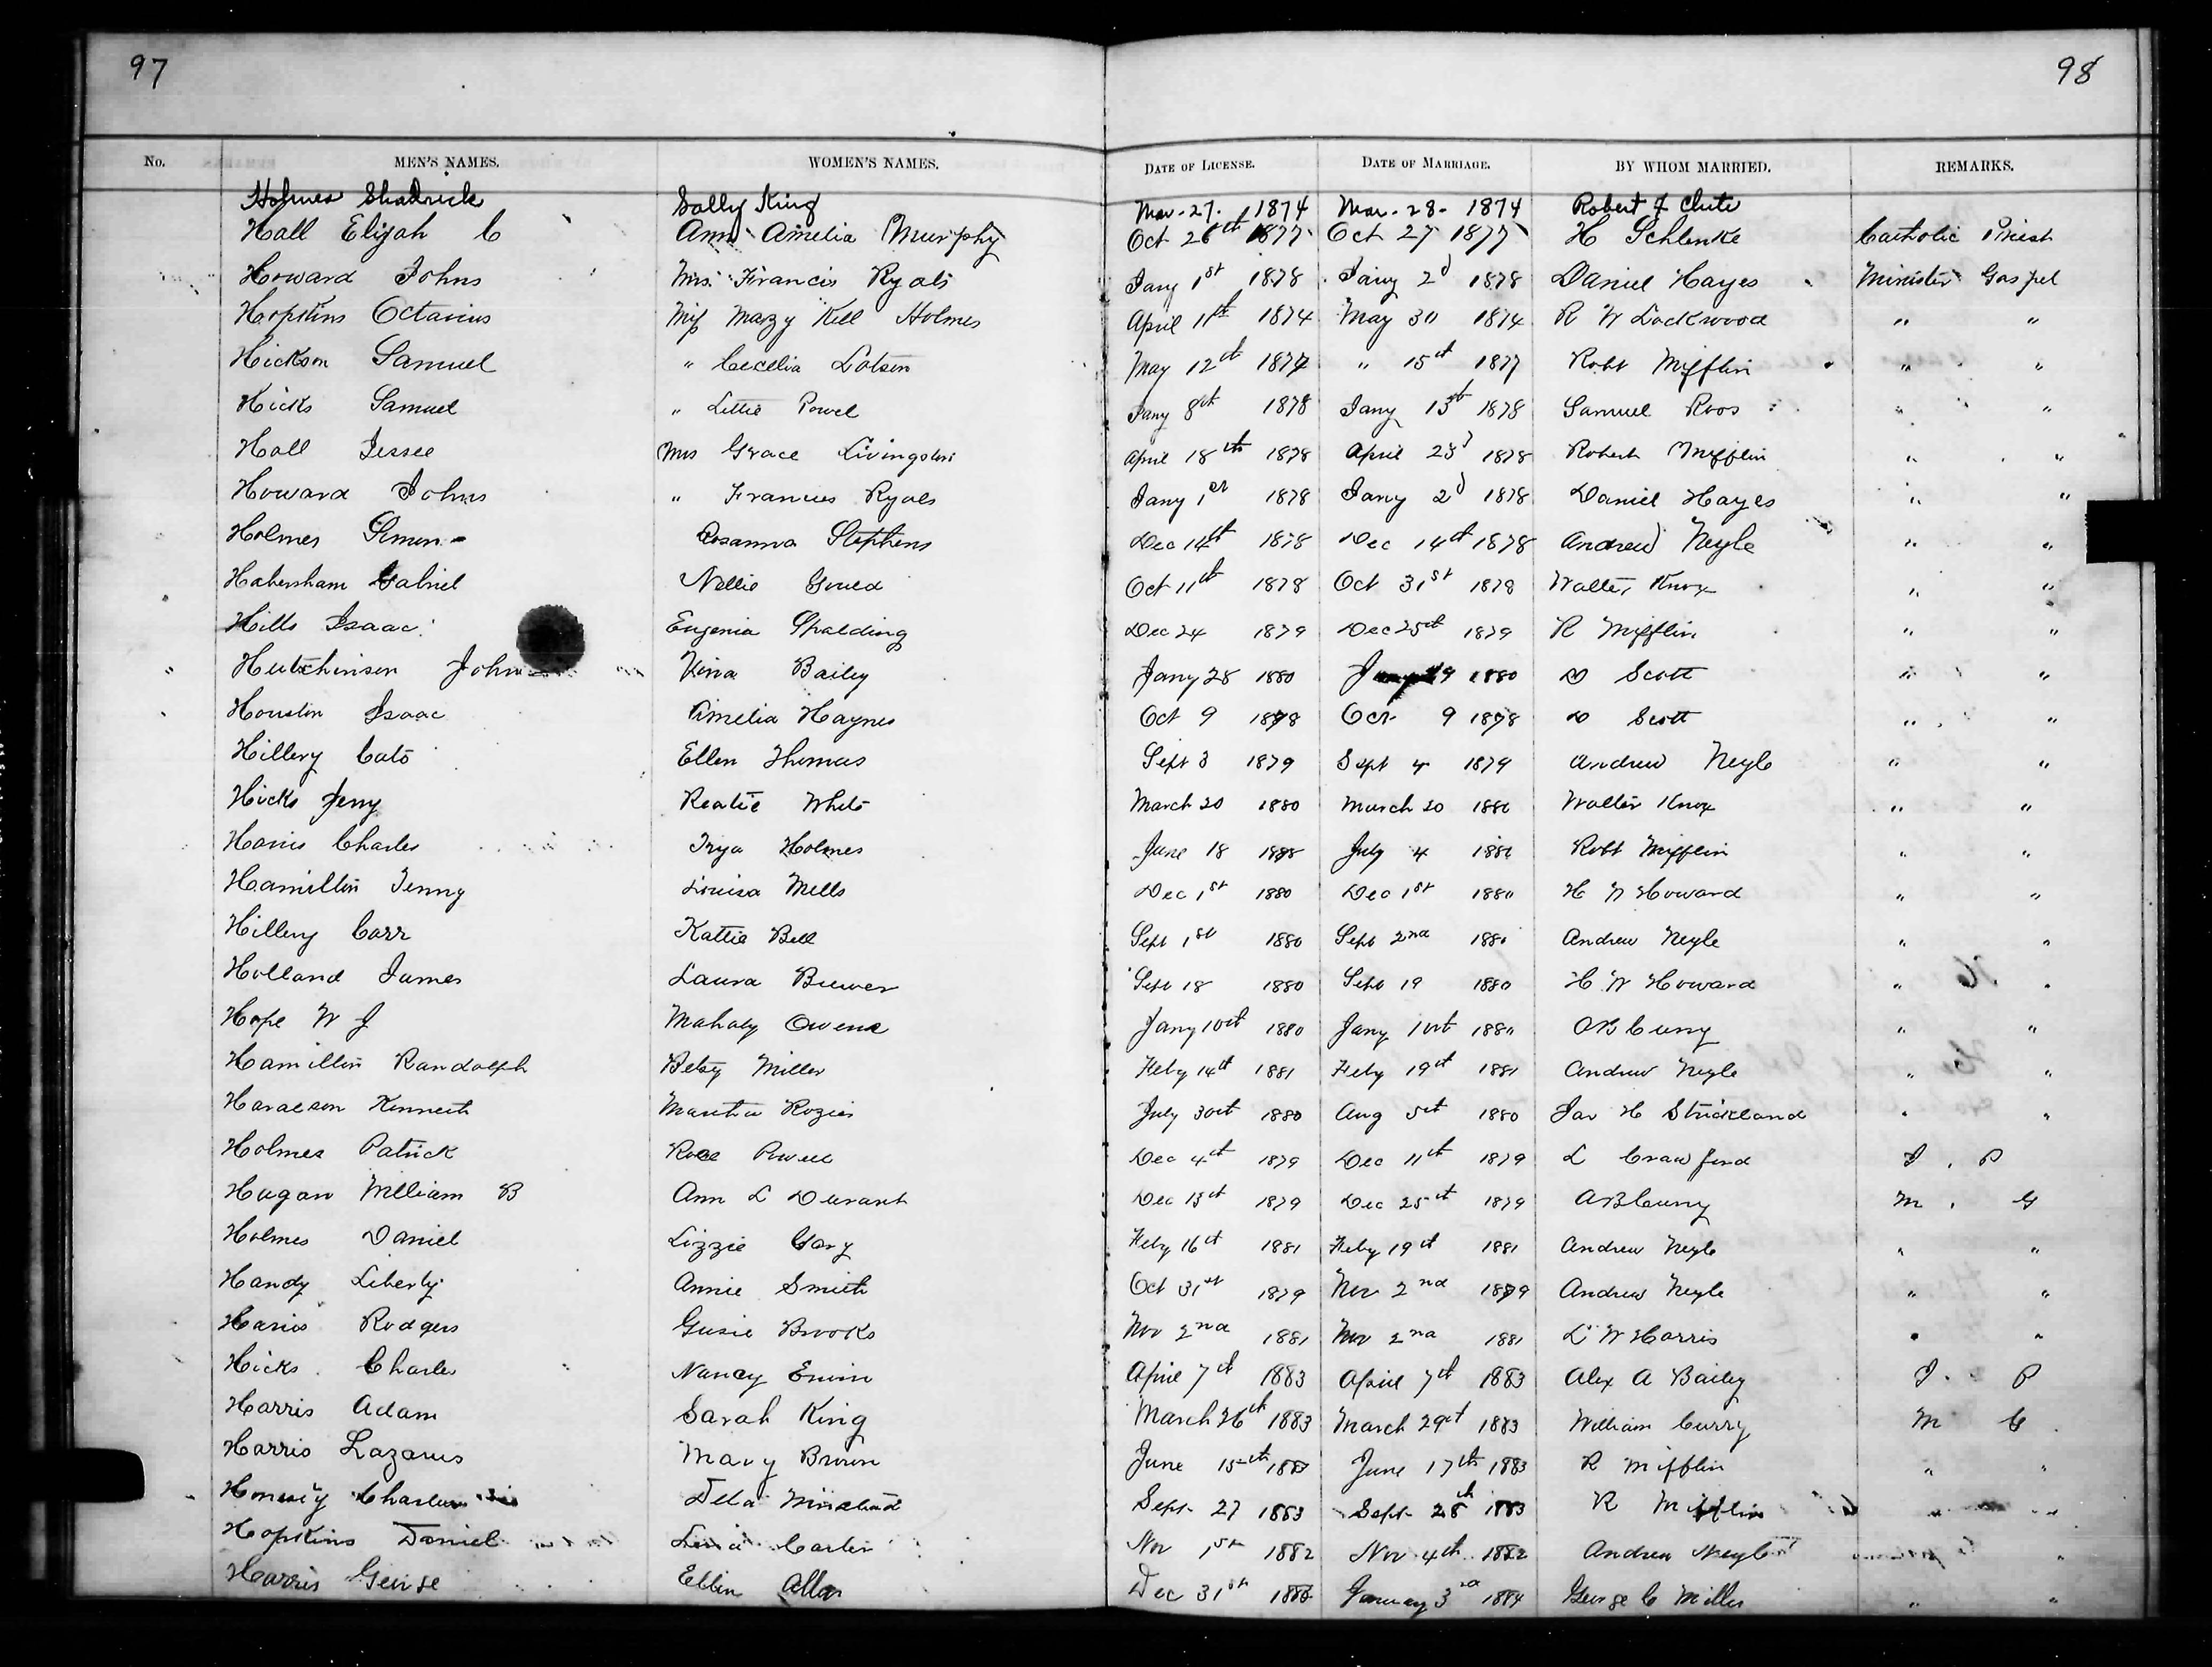 97
98
No. MEN'S NAMES. WOMEN'S NAMES. DATE OF LICENSE. DATE OF MARRIAGE. BY WHOM MARRIED. REMARKS.
Holmes Shadrick Sally King Mar. 27. 1874 Mar. 28. 1874 Robert F Clute
Hall Elijah C Ann Amelia Murphy Oct 26th 1877 Oct 27 1877 H Schlenke Catholic Priest
Howard Johns Mrs. Francis Ryals Jany 1st 1878 Jany 2d 1878 Daniel Hayes Minister Gospel
Hopkins Octavius Miss Mary Kell Holmes April 11th 1874 May 30 1874 R W Lockwood " "
Hickson Samuel " Cecelia Lotson May 12th 1877 " 15th 1877 Robt Mifflin " "
Hicks Samuel " Lettie Powel Jany 8th 1878 Jany 13th 1878 Samuel Roos " "
Hall Jessee Mrs Grace Livingston April 18th 1878 April 23d 1878 Robert Mifflin " "
Howard Johns " Frances Ryals Jany 1st 1878 Jany 2d 1878 Daniel Hayes " "
Holmes Simon Rosanna Stephens Dec 14th 1878 Dec 14th 1878 Andrew Neyle " "
Habersham Gabriel Nellie Gould Oct 11th 1878 Oct 31st 1878 Walter Knox " "
Hills Isaac Eugenia Spalding Dec 24 1879 Dec 25th 1879 R Mifflin " "
Hutchinson John Kina Bailey Jany 28 1880 Jany 29 1880 D Scott " "
Houston Isaac Amelia Haynes Oct 9 1878 Oct 9 1878 D Scott " "
Hillery Cato Ellen Thomas Sept 3 1879 Sept 4 1879 Andrew Neyle " "
Hicks Jerry Reatie White March 20 1880 March 20 1880 Walter Knox " "
Harris Charles Holmes June 18 July 4 1880 Robt Mifflin " "
Hamilton Jenny Louisa Mells Dec 1st 1880 Dec 1st 1880 H W Howard " "
Hillery Carr Kattie Bell Sept 1st 1880 Sept 2nd 1880 Andrew Neyle " "
Holland James Laura Brewer Sept 18 1880 Sept 19 1880 H W Howard " "
Hope W J Mahaly Owens Jany 10th 1880 Jany 10th 1880 A B Curry " "
Hamilton Randolph Betsy Miller Feby 14th 1881 Feby 19th 1881 Andrew Neyle " "
Haraeson Kenneth Martha Rozier July 30th 1880 Aug 5th 1880 Jas H Strickland " "
Holmes Patrick Rose Powell Dec 4th 1879 Dec 11th 1879 L Crawford J. P
Hagan William B Ann L Durant Dec 13th 1879 Dec 25th 1879 A B Curry M. G
Holmes Daniel Lizzie Gary Feby 16th 1881 Feby 19th 1881 Andrew Neyle " "
Handy Liberty Annie Smith Oct 31st 1879 Nov 2nd 1879 Andrew Neyle " "
Harris Rodgers Gusie Brooks Nov 2nd 1881 Nov 2nd 1881 L W Harris " "
Hicks Charles Nancy April 7th 1883 April 7th 1883 Alex A Bailey J. P
Harris Adam Sarah King March 26th 1883 March 29th 1883 William Curry M G
Harris Lazarus Mary Brown June 15th 1883 June 17th 1883 R Mifflin " "
Charles Dela Sept 27 1883 Sept 28th 1883 R Mifflin " "
Hopkins Daniel Carter Nov 1st 1882 Nov 4th 1882 Andrew Neyle "
Harris George Ellin Allen Dec 31st 1883 January 3rd 1884 George C Miller " "